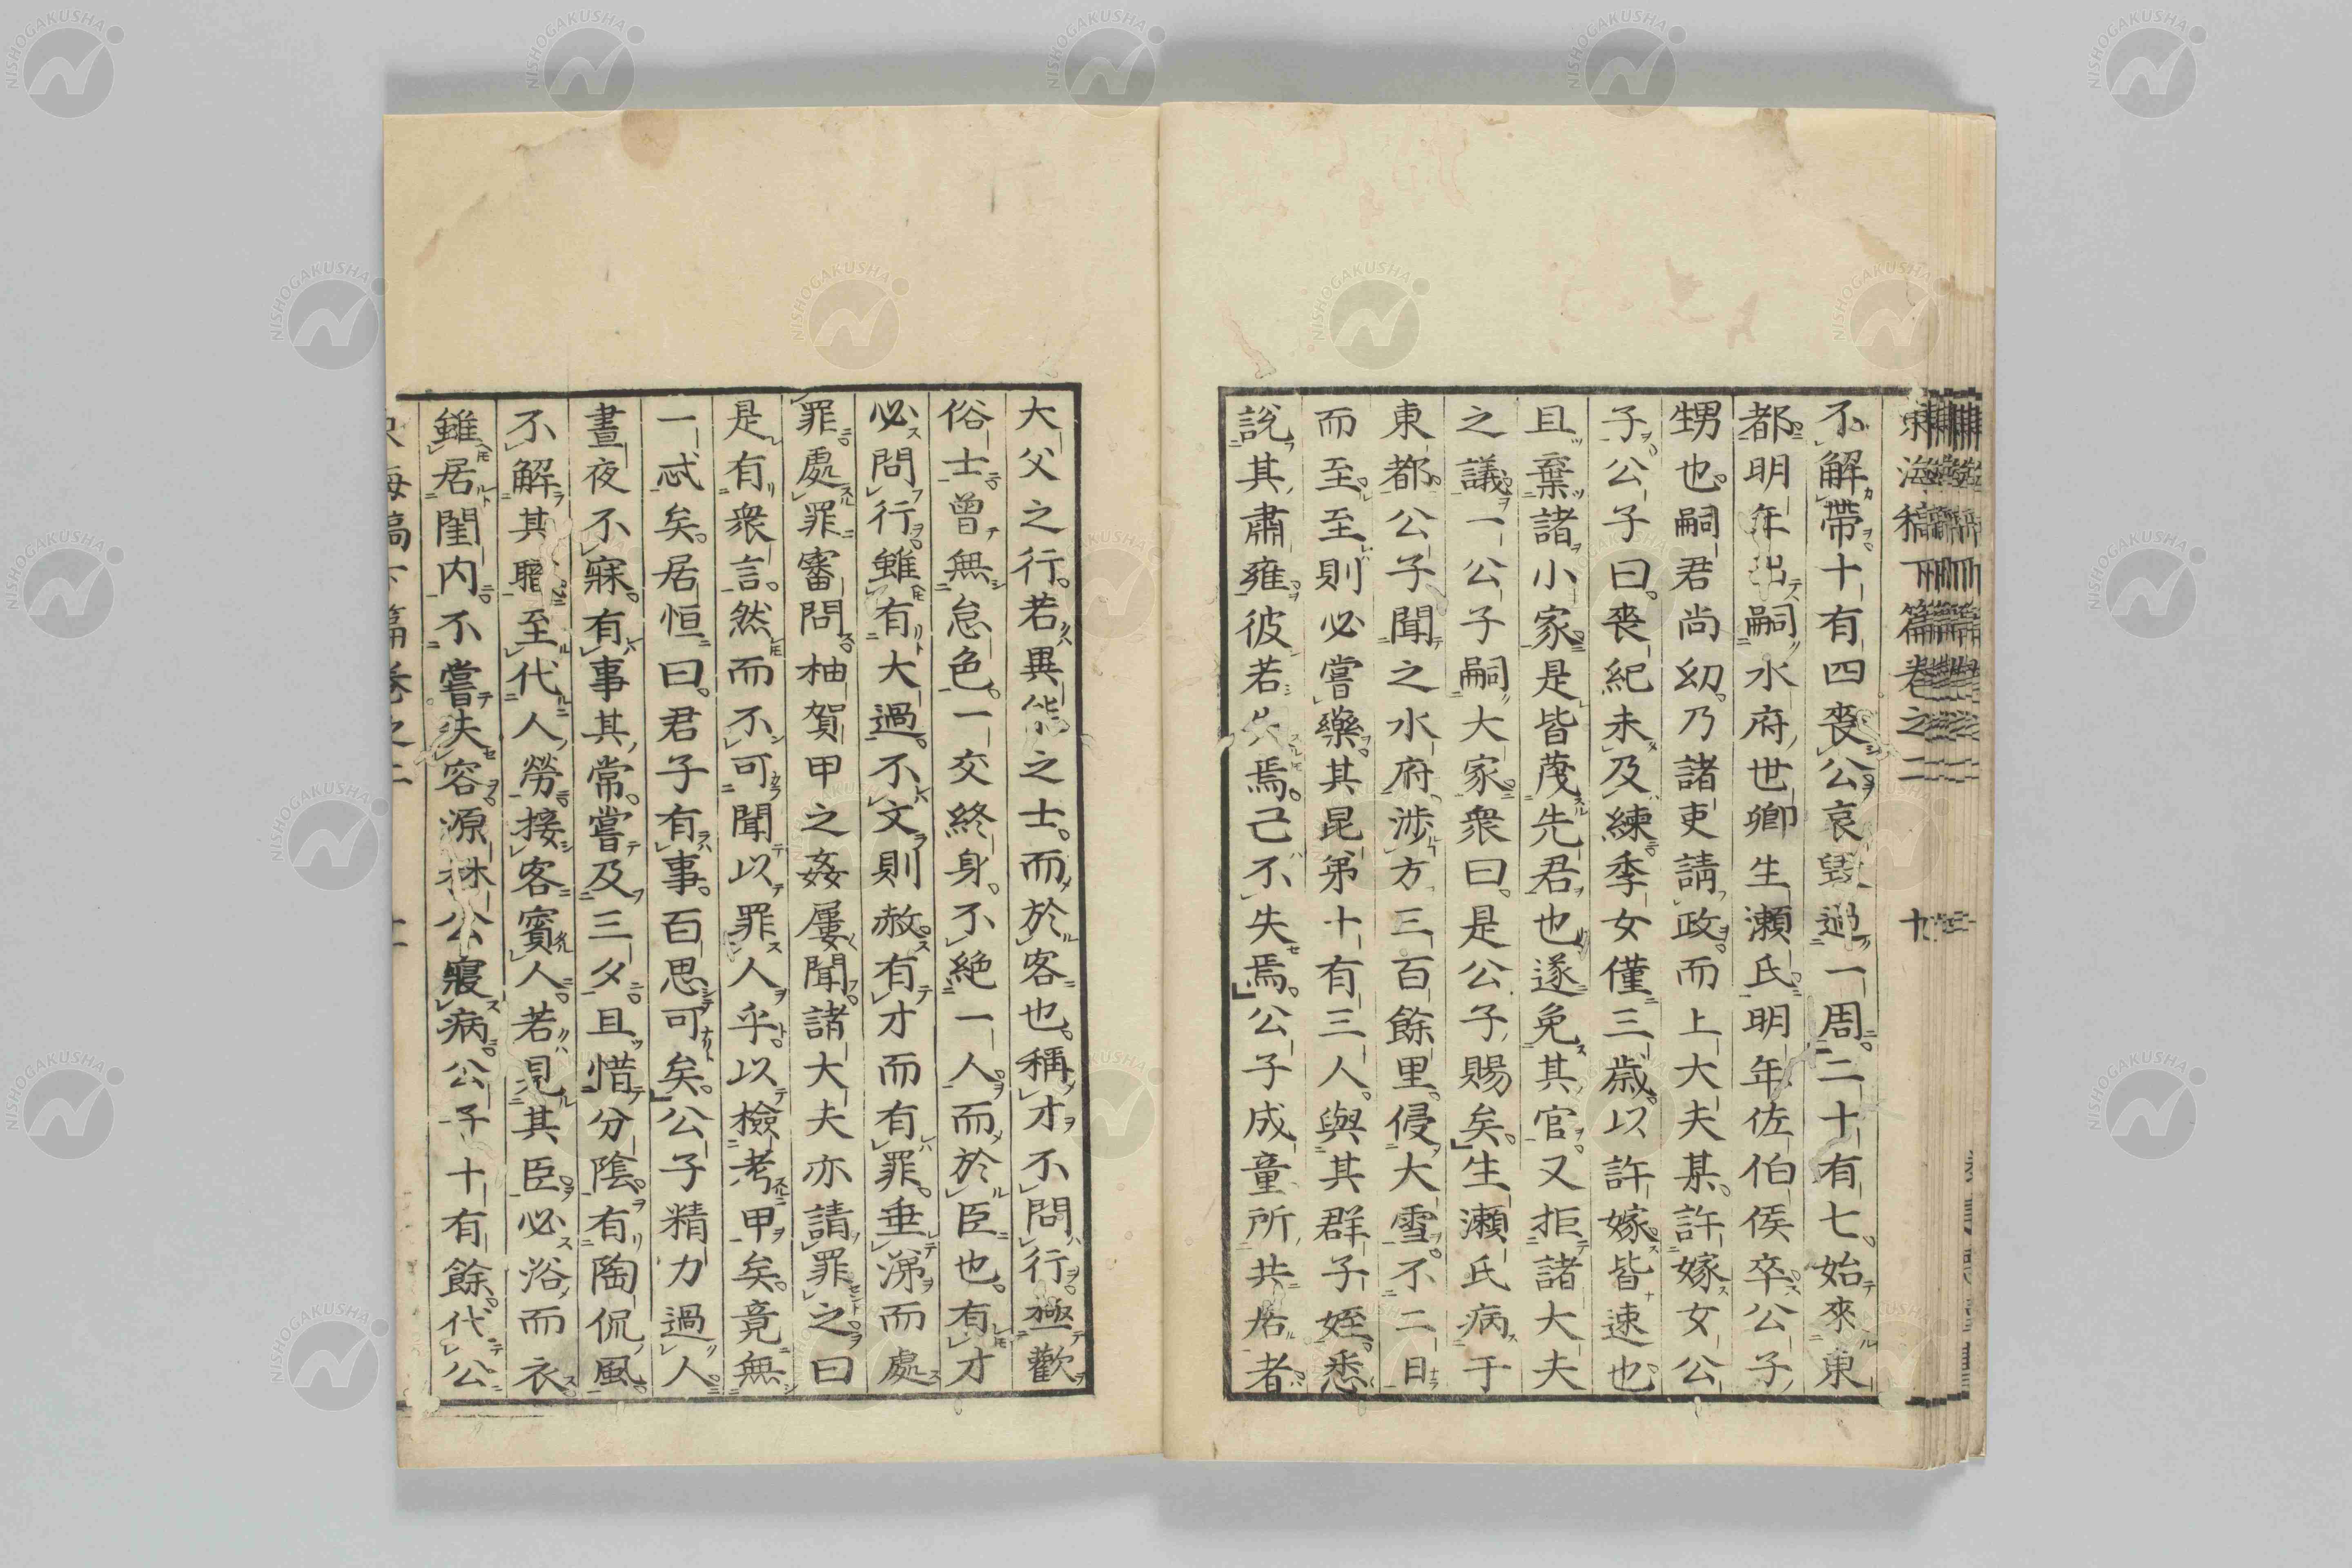 東海稿下篇卷之二　十
不解帶十有四喪公哀毀過一周二十有七始來東
都明年出嗣水府世卿生瀬氏明年佐伯侯卒公子
甥也嗣君尚幼乃諸吏請政而上大夫某許嫁女公
子公子曰喪紀未及練季女僅三歳以許嫁皆速也
且棄諸小家是皆蔑先君也遂免其官又拒諸大夫
之議一公子嗣大家衆曰是公子賜矣生瀬氏病于
東都公子聞之水府涉方三百餘里侵大雪不二日
而至至則必嘗藥其昆弟十有三人與其群子姪悉
説其肅雍彼若失焉己不失焉公子成童所共居者
大父之行若異能之士而於客也稱才不問行極歡
俗士曾無怠色一交終身不絶一人而於臣也有才
必問行雖有大過不文則赦有才而有罪垂涕而處
罪處罪審問柚賀甲之姦屢聞諸大夫亦請罪之曰
是有衆言然而不可聞以罪人乎以檢考甲矣竟無
一忒矣居恒曰君子有事百思可矣公子精力過人
晝夜不寐有事其常嘗及三夕且惜分陰有陶侃風
不解其聽至代人勞接客賓人若見其臣必浴而衣
雖居閨内不嘗失容源林公寢病公子十有餘代公
NISHOGAKUSHA